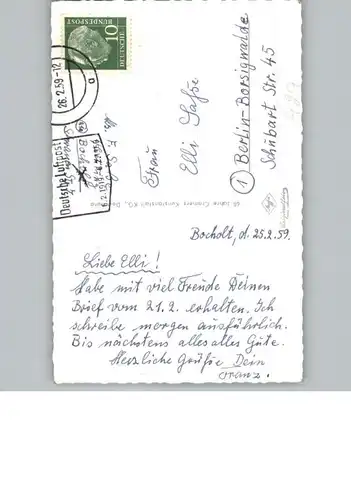 10
DEUTSCHE
BUNDESPOST
26.2.59-12
Deutsche Luftpost
Frau
Elli
Berlin-Borsigwalde
Schubart Str. 45
Bocholt, d. 25.2.59.
Liebe Elli!
Habe mit viel Freude Deinen
Brief vom 21.2. erhalten. Ich
schreibe morgen ausführlich.
Bis nächstens alles alles Gute.
Herzliche Grüße Dein
Franz.